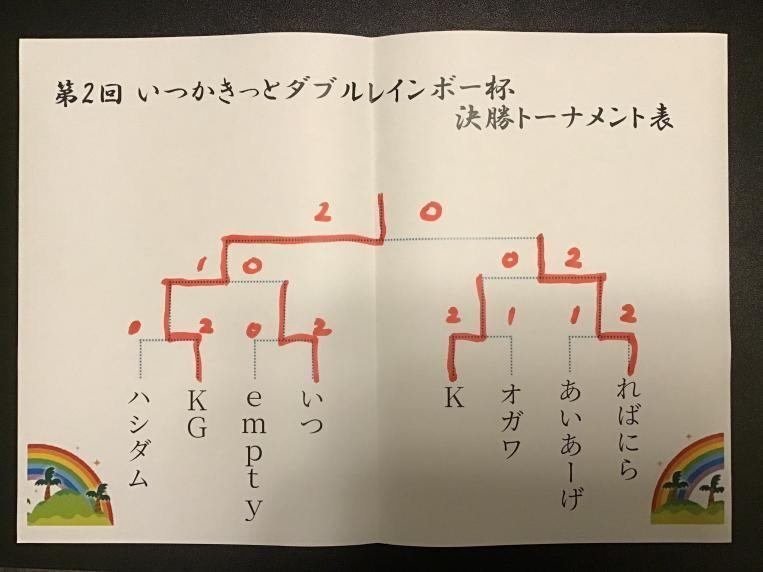 第2回 いつかきっとダブルレインボー杯
決勝トーナメント表
2 0
1 0 0 2
0 2 0 2 2 1 1 2
ハシダム
KG
empty
いつ
K
オガワ
あいあーげ
ればにら